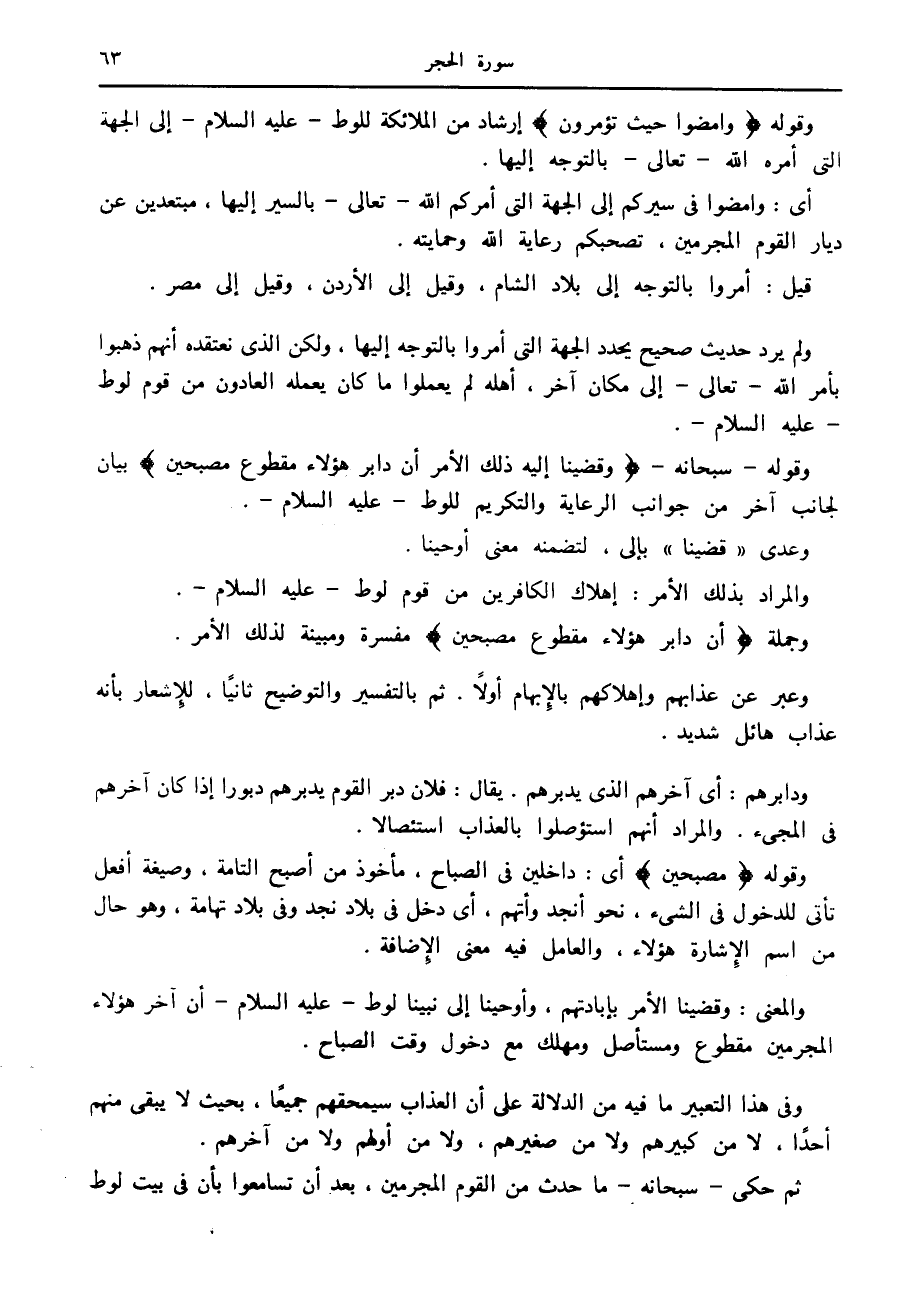 سورة الحجر ٦٣
وقوله ﴿ وامضوا حيث تؤمرون ﴾ إرشاد من الملائكة للوط – عليه السلام – إلى الجهة
التى أمره الله – تعالى – بالتوجه إليها .
أى : وامضوا فى سيركم إلى الجهة التى أمركم الله – تعالى – بالسير إليها ، مبتعدين عن
ديار القوم المجرمين ، تصحبكم رعاية الله وحمايته .
قيل : أمروا بالتوجه إلى بلاد الشام ، وقيل إلى الأردن ، وقيل إلى مصر .
ولم يرد حديث صحيح يحدد الجهة التى أمروا بالتوجه إليها ، ولكن الذى نعتقده أنهم ذهبوا
بأمر الله – تعالى – إلى مكان آخر ، أهله لم يعملوا ما كان يعمله العادون من قوم لوط
– عليه السلام – .
وقوله – سبحانه – ﴿ وقضينا إليه ذلك الأمر أن دابر هؤلاء مقطوع مصبحين ﴾ بيان
لجانب آخر من جوانب الرعاية والتكريم للوط – عليه السلام – .
وعدى « قضينا » بإلى ، لتضمنه معنى أوحينا .
والمراد بذلك الأمر : إهلاك الكافرين من قوم لوط – عليه السلام – .
وجملة ﴿ أن دابر هؤلاء مقطوع مصبحين ﴾ مفسرة ومبينة لذلك الأمر .
وعبر عن عذابهم وإهلاكهم بالإبهام أولاً . ثم بالتفسير والتوضيح ثانيًا ، للإشعار بأنه
عذاب هائل شديد .
ودابرهم : أى آخرهم الذى يدبرهم . يقال : فلان دبر القوم يدبرهم دبورا إذا كان آخرهم
فى المجىء . والمراد أنهم استؤصلوا بالعذاب استئصالا .
وقوله ﴿ مصبحين ﴾ أى : داخلين فى الصباح ، مأخوذ من أصبح التامة ، وصيغة أفعل
تأتى للدخول فى الشىء ، نحو أنجد وأتهم ، أى دخل فى بلاد نجد وفى بلاد تهامة ، وهو حال
من اسم الإشارة هؤلاء ، والعامل فيه معنى الإضافة .
والمعنى : وقضينا الأمر بإبادتهم ، وأوحينا إلى نبينا لوط – عليه السلام – أن آخر هؤلاء
المجرمين مقطوع ومستأصل ومهلك مع دخول وقت الصباح .
وفى هذا التعبير ما فيه من الدلالة على أن العذاب سيمحقهم جميعًا ، بحيث لا يبقى منهم
أحدًا ، لا من كبيرهم ولا من صغيرهم ، ولا من أولهم ولا من آخرهم .
ثم حكى – سبحانه – ما حدث من القوم المجرمين ، بعد أن تسامعوا بأن فى بيت لوط